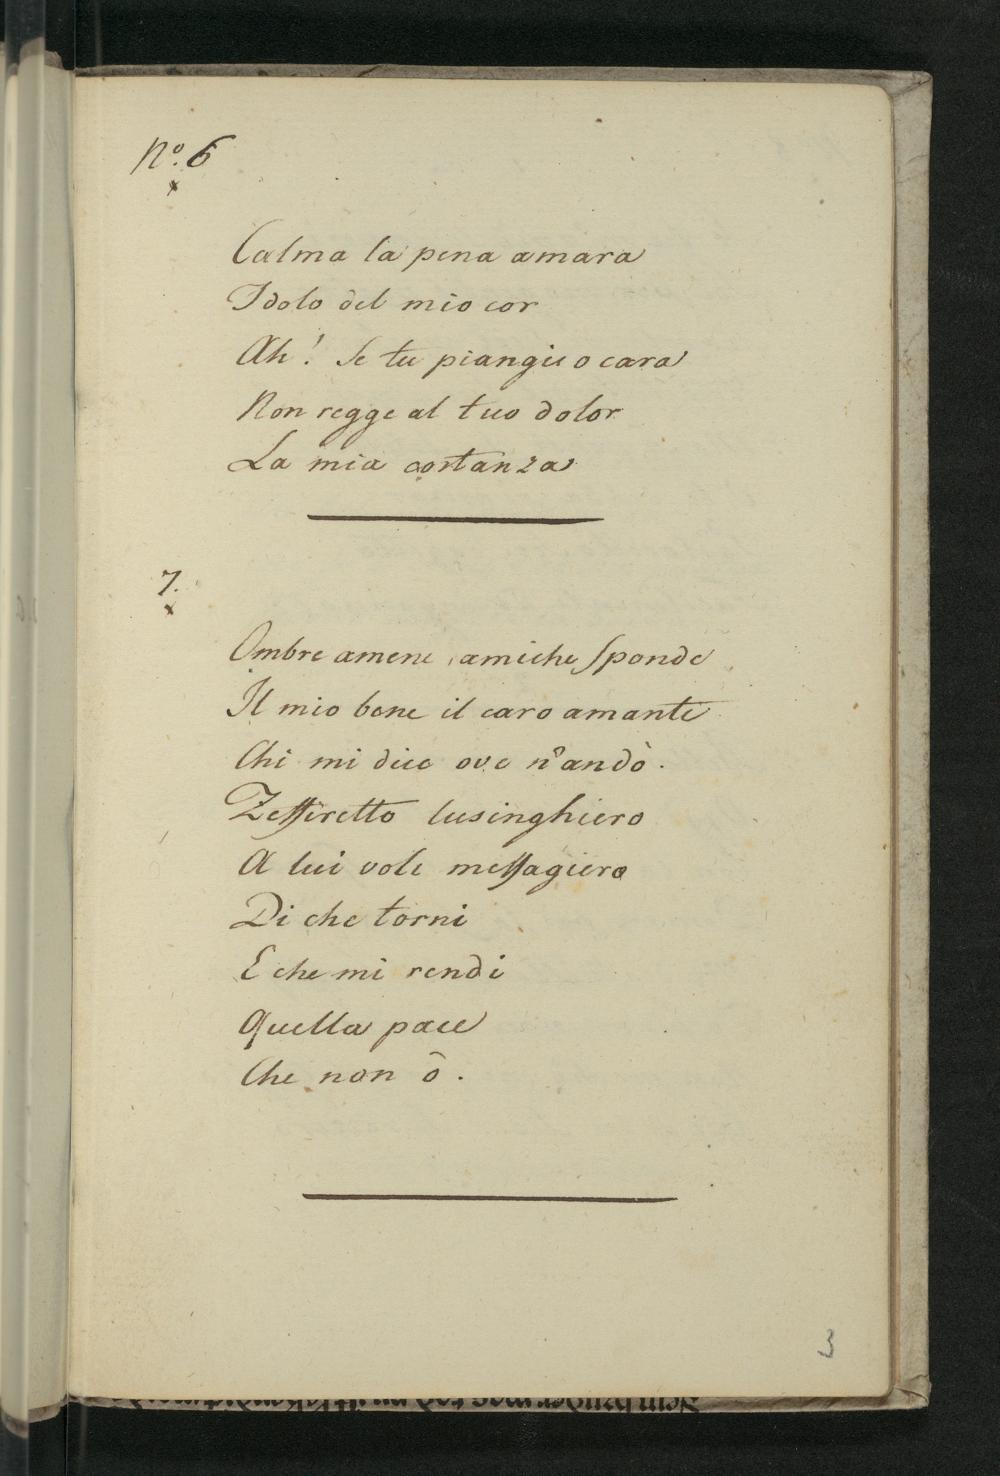 No. 6
x
Calma la pena amara
Idolo del mio cor
Ah! Se tu piangi o cara
Non regge al tuo dolor
La mia costanza
7.
x
Ombre amene, amiche sponde
Il mio bene il caro amante
Chi mi dice ove n'andò.
Zeffiretto lusinghiero
A lui vole messagiero
Di che torni
E che mi rendi
Quella pace
Che non ô.
3